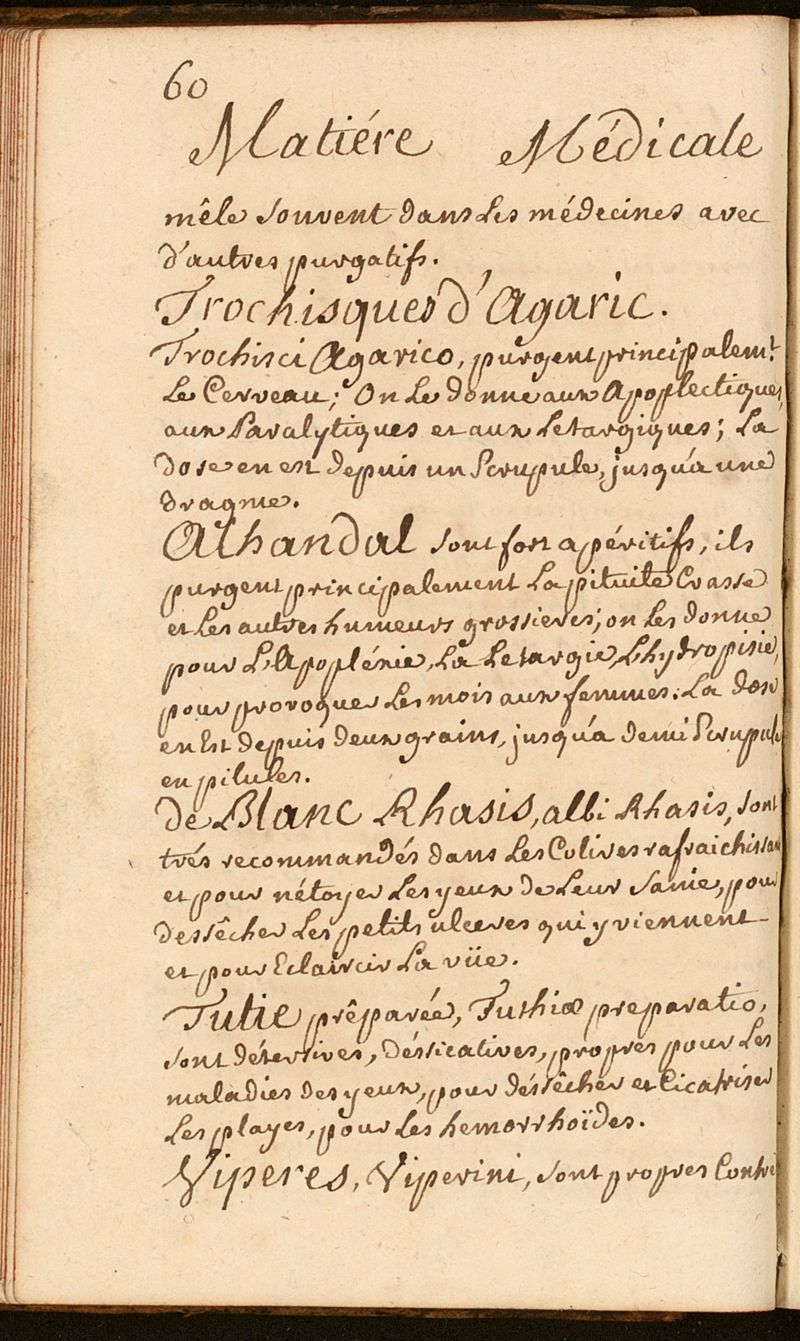 60
Matiére Médicale
mêle souvent dans les médecines avec
d'autres purgatifs.
Trochisques d'Agaric.
Trochisci Agarico, purgent principalemt.
le Cerveau; On le donne aux Apoplectiques,
aux Paralytiques et aux Letargiques; La
dose en est depuis un Scrupule, jusqu'a une
dragme.
Alhandal sont fort apéritifs, ils
purgent principalement la pituite Crasse
et les autres humeurs grossieres; on les donne
pour L'Apopléxie, La Letargie, L'hydropisie,
pour provoquer les mois aux femmes. La dose
en Est depuis deux grains, jusqu'a demi Scrupule
en pilules.
de Blanc Rhasis, albi Rhasis, sont
trés recommandés dans les Colires rafraichissan
et pour nétoyer les yeux de leur Sanie, pour
dessêcher les petits ulceres qui y viennent
et pour Eclaircir la vüe.
Tutie prêparée, Tuthiæ preparatio,
sont détersives, déssicatives, propres pour les
maladies des yeux, pour déssêcher et Cicatriser
les playes, pour les hemorrhoïdes.
Viperes, Viperini, sont propres Contre